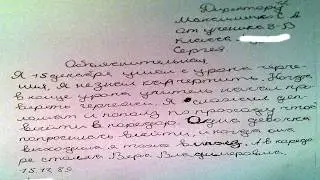 Директору
Максименко С А
от ученика 8-
класса
Сергея
Объяснительная
Я 15 декабря ушёл с урока черче-
ния. Я не знал как чертить. Когда
в конце урока учитель начал про-
верять чертежи. Я
и пошёл по проходу чтоб
выйти в коридор. Одна девочка
попросилась выйти, и когда она
выходила я тоже вышел. А в коридо-
ре стояла Вера Владимировна.
15.12.89.